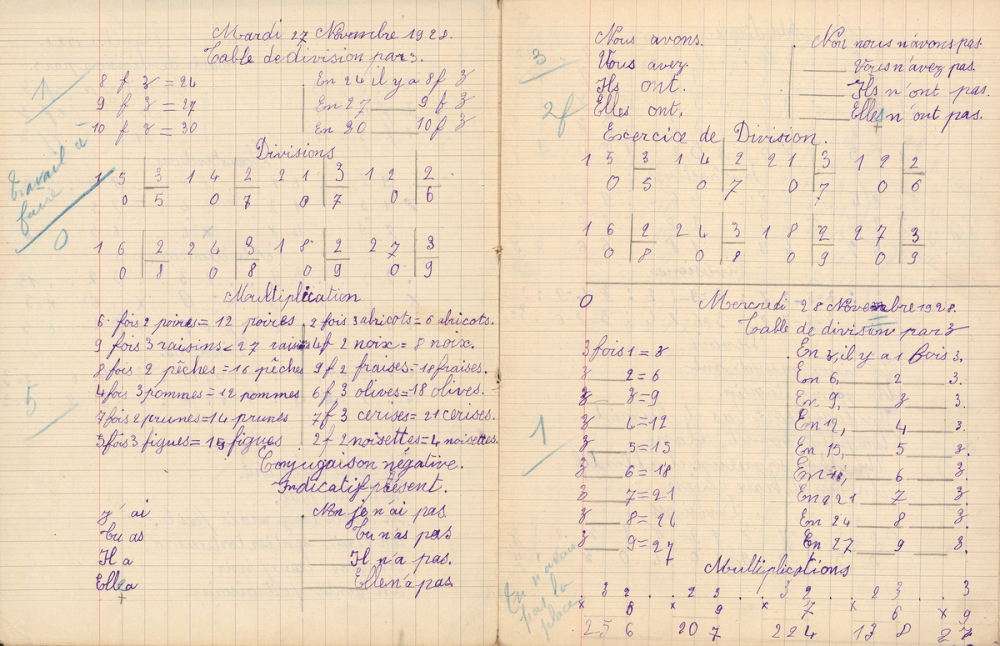 Mardi 27 Novembre 1928.
Table de division par 3.
1
8 f 3 = 24 En 24 il y a 8 f 3
9 f 3 = 27 En 27 __ 9 f 3
10 f 3 = 30 En 30 10 f 3
Divisions
travail à
faire
0
1 5 | 3 1 4 | 2 2 1 | 3 1 2 | 2
0 | 5 0 | 7 0 | 7 0 | 6
1 6 | 2 2 4 | 3 1 8 | 2 2 7 | 3
0 | 8 0 | 8 0 | 9 0 | 9
Moultiplication
6 fois 2 poires = 12 poires 2 fois 3 abricots = 6 abricots.
9 fois 3 raisins = 27 raisins 4 f 2 noix = 8 noix.
8 fois 2 pêches = 16 pêches 9 f 2 fraises = 18 fraises.
4 fois 3 pommes = 12 pommes 6 f 3 olives = 18 olives.
5
7 fois 2 prunes = 14 prunes 7 f 3 cerises = 21 cerises.
5 fois 3 figues = 15 figues 2 f 2 noisettes = 4 noisettes.
Conjugaison négative.
Indicatif présent.
j'ai Non je n'ai pas
Tu as __ Tu n'as pas
Il a __ Il n'a pas.
Elle a __ Elle n'a pas
Nous avons. Non nous n'avons pas
3
Vous avez. __ Vous n'avez pas.
Ils ont. __ Ils n'ont pas.
2f
Elles ont. __ Elles n'ont pas.
Exercice de Division.
1 5 | 3 1 4 | 2 2 1 | 3 1 2 | 2
0 | 5 0 | 7 0 | 7 0 | 6
1 6 | 2 2 4 | 3 1 8 | 2 2 7 | 3
0 | 8 0 | 8 0 | 9 0 | 9
0
Mercredi 28 Novembre 1928.
Table de division par 3
3 fois 1 = 3 En 3, il y a 1 fois 3.
3 __ 2 = 6 En 6, __ 2 __ 3.
3 __ 3 = 9 En 9, __ 3 __ 3.
3 __ 4 = 12 En 12, __ 4 __ 3.
1
3 __ 5 = 15 En 15, __ 5 __ 3.
3 __ 6 = 18 En 18, __ 6 __ 3.
3 __ 7 = 21 En 21 __ 7 __ 3.
3 __ 8 = 24 En 24 __ 8 __ 3.
3 __ 9 = 27 En 27 __ 9 __ 3.
Moultiplications
Tu n'avais
pas la
place
. 3 2 . . 2 3 . . 3 2 . . 2 3 . . 3
× 8 × 9 × 7 × 6 × 9
25 6 20 7 22 4 13 8 27